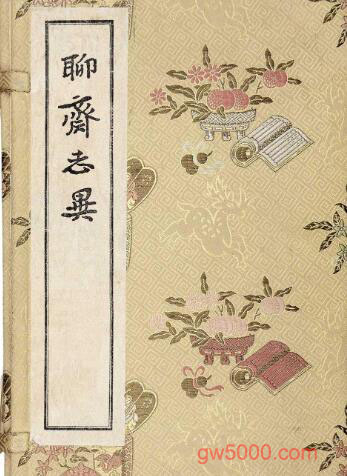 聊齋志異
gw5000.com